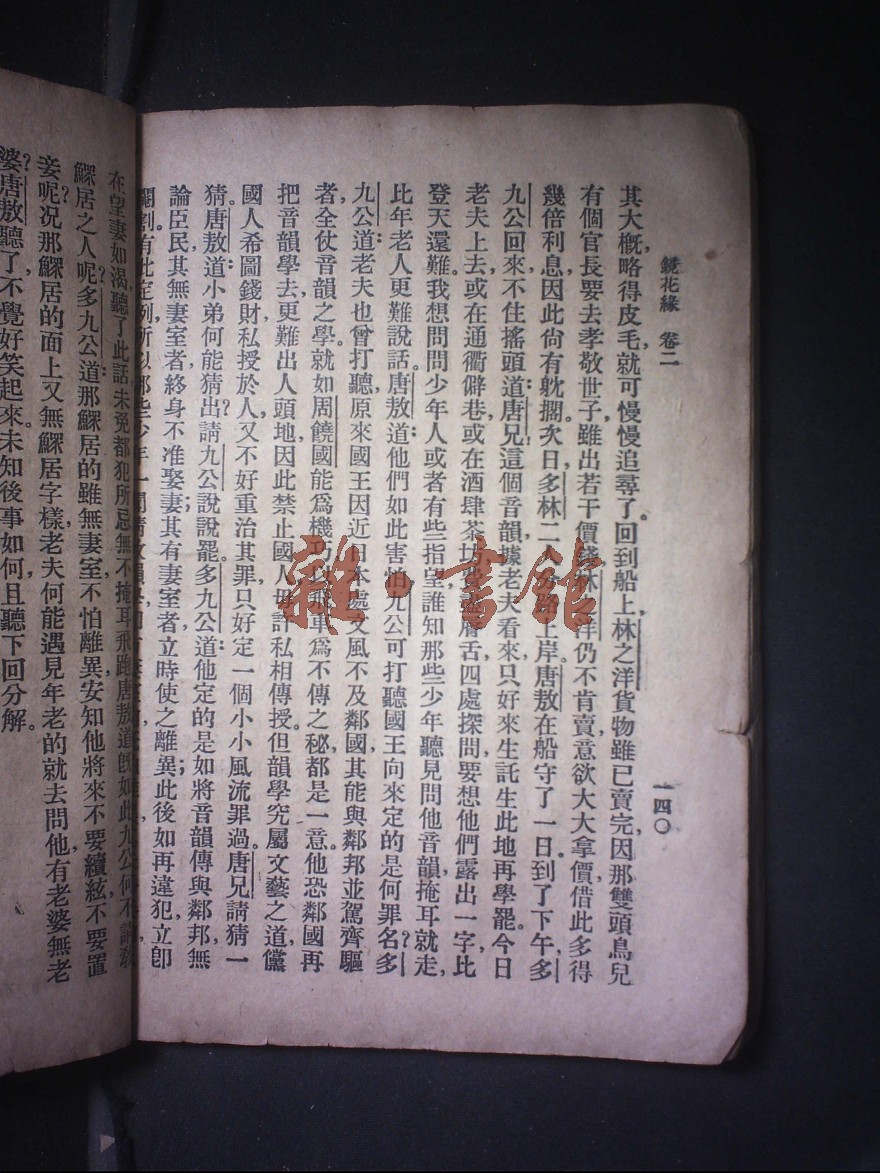 鏡花緣　卷二
一四〇
其大槪，略得皮毛，就可慢慢追尋了。回到船上，林之洋貨物雖已賣完，因那雙頭鳥兒，
有個官長要去孝敬世子，雖出若干價錢，林之洋仍不肯賣，意欲大大拿價，借此多得
幾倍利息，因此尙有躭擱。次日，多林二人分路上岸。唐敖在船守了一日。到了下午，多
九公回來，不住搖頭道：唐兄，這個音韻，據老夫看來，只好來生託生此地再學罷。今日
老夫上去，或在通衢僻巷，或在酒肆茶坊，費盡脣舌，四處探問，要想他們露出一字，比
登天還難。我想問問少年人，或者有些指望，誰知那些少年聽見問他音韻，掩耳就走，
比年老人更難說話。唐敖道：他們如此害怕，九公可打聽國王向來定的是何罪名？多
九公道：老夫也曾打聽，原來國王因近日本處文風不及鄰國，其能與鄰邦並駕齊驅
者，全仗音韻之學，就如周饒國能爲機巧，以飛車爲不傳之秘，都是一意。他恐鄰國再
把音韻學去，更難出人頭地，因此禁止國人，毋許私相傳授。但韻學究屬文藝之道，儻
國人希圖錢財，私授於人，又不好重治其罪，只好定一個小小風流罪過。唐兄請猜一
猜。唐敖道：小弟何能猜出？請九公說說罷。多九公道：他定的是如將音韻傳與鄰邦，無
論臣民，其無妻室者，終身不准娶妻；其有妻室者，立時使之離異；此後如再違犯，立卽
閹割。有此定例，所以那些少年一聞請敎
在望妻如渴，聽了此話，未免都犯所忌，無不掩耳飛跑。唐敖道：旣如此，九公何不請敎
鰥居之人呢？多九公道：那鰥居的雖無妻室，不怕離異，安知他將來不要續絃，不要置
妾呢？况那鰥居的面上又無鰥居字樣，老夫何能遇見年老的，就去問他有老婆無老
婆？唐敖聽了，不覺好笑起來。未知後事如何，且聽下回分解。
雜·書館